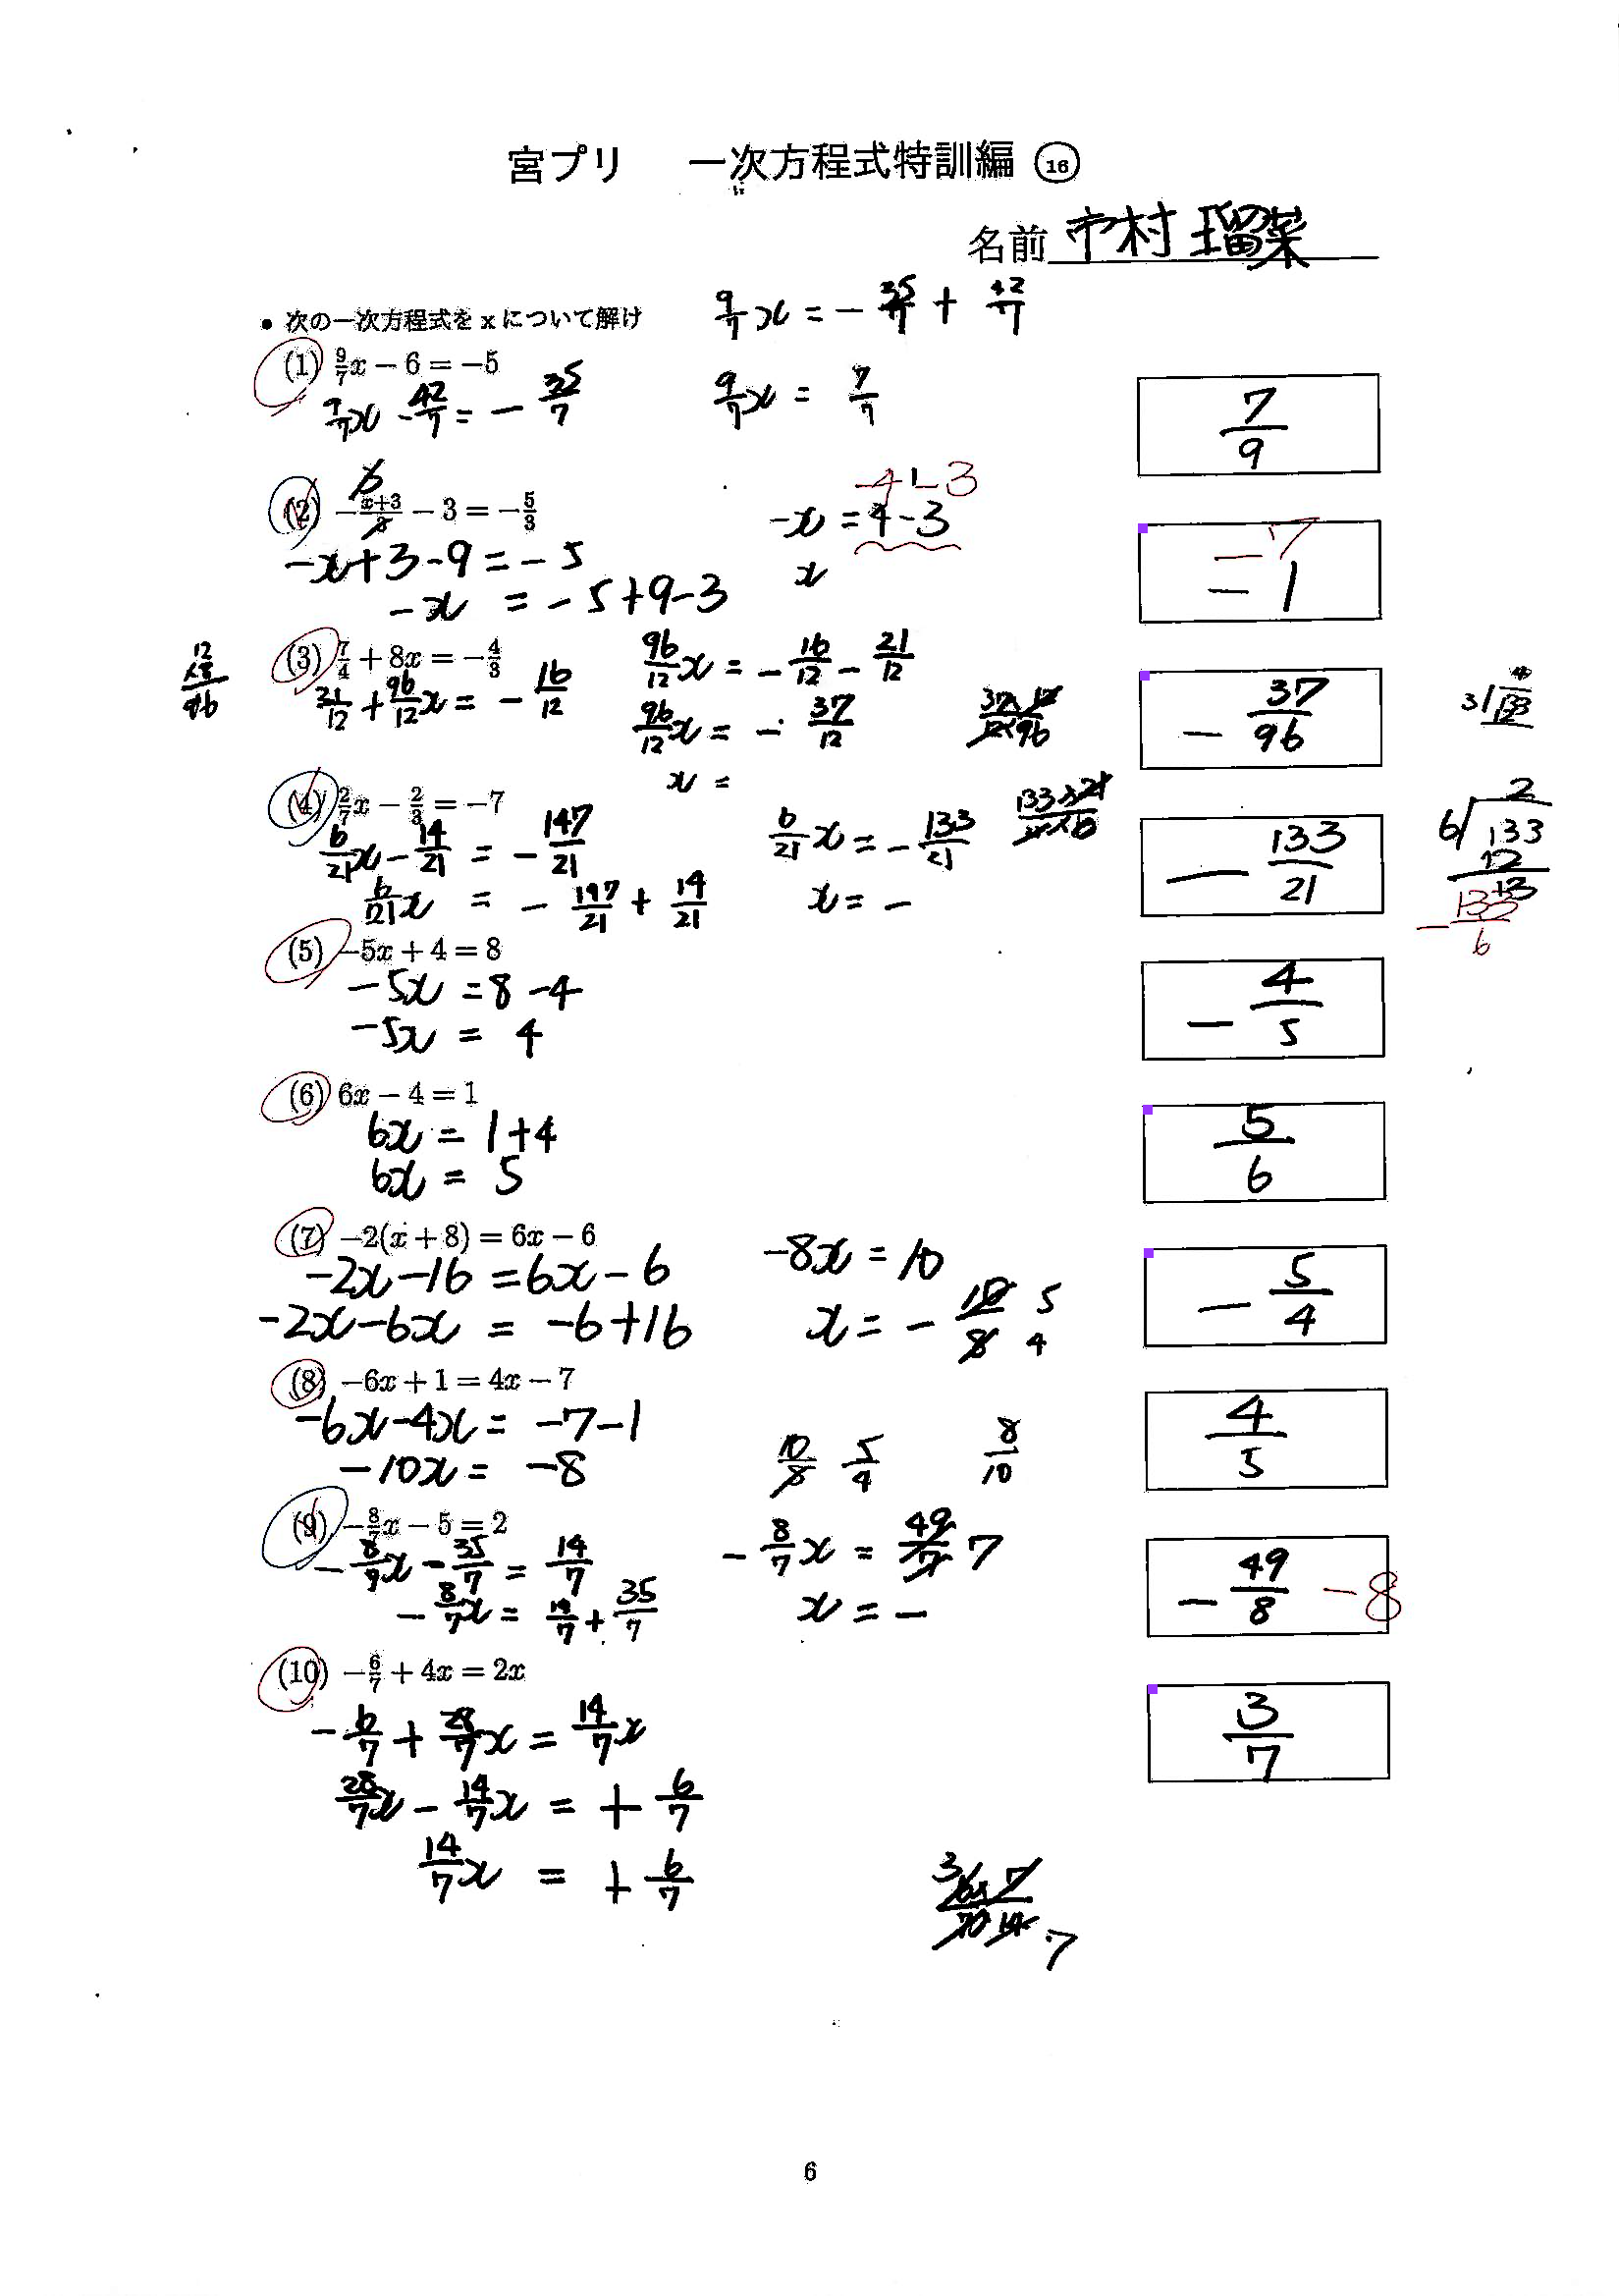 宮プリ 一次方程式特訓編 ⑯
名前 市村 瑠菜
• 次の一次方程式をxについて解け
9/7x = - 35/7 + 42/7
(1) 9/7x − 6 = −5
9/7x - 42/7 = - 35/7
9/7x = 7/7
7/9
(2) −(x+3)/3 − 3 = −5/3
-x+3-9=-5
-x = -5+9-3
-4+-3
-x = 4-3
x
-7
-1
(3) 7/4 + 8x = −4/3
21/12 + 96/12x = - 16/12
12
×8
96
96/12x = - 16/12 - 21/12
96/12x = - 37/12
x =
- 37/96
(4) 2/7x − 2/3 = −7
6/21x - 14/21 = - 147/21
6/21x = - 147/21 + 14/21
6/21x = - 133/21
x = -
- 133/21
2
6)133
12
13
- 133/6
(5) −5x + 4 = 8
-5x = 8-4
-5x = 4
- 4/5
(6) 6x − 4 = 1
6x = 1+4
6x = 5
5/6
(7) −2(x + 8) = 6x − 6
-2x-16=6x-6
-2x-6x = -6+16
-8x = 10
x = - 10/8 5/4
- 5/4
(8) −6x + 1 = 4x − 7
-6x-4x = -7-1
-10x = -8
10/8 5/4 8/10
4/5
(9) −8/7x − 5 = 2
- 8/9x - 35/7 = 14/7
- 8/7x = 14/7 + 35/7
- 8/7x = 49/7 7
x = -
- 49/8 -8
(10) −6/7 + 4x = 2x
- 6/7 + 28/7x = 14/7x
28/7x - 14/7x = + 6/7
14/7x = + 6/7
3/7
6